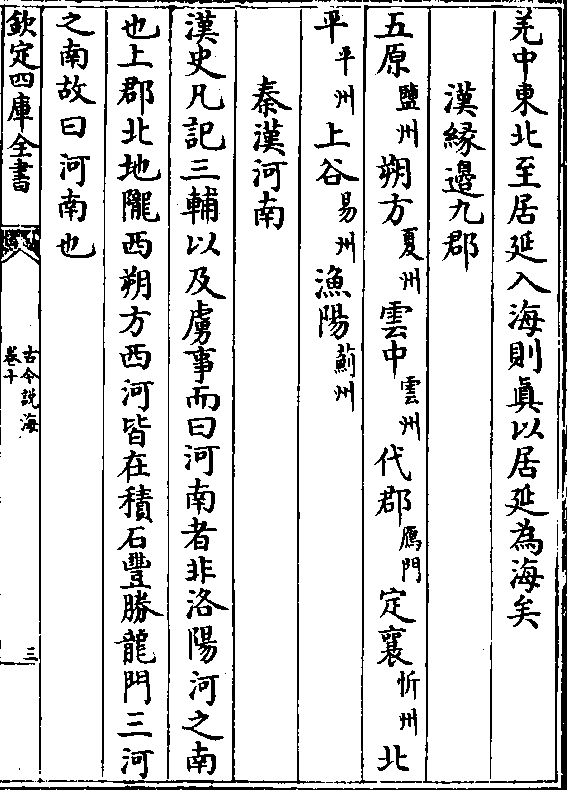 羌中東北至居延入海則真以居延為海矣
漢緣邉九郡
五原鹽州朔方夏州雲中雲州代郡鴈門定襄忻州北
平平州上谷易州漁陽薊州
秦漢河南
漢史凡記三輔以及虜事而曰河南者非洛陽河之南
也上郡北地隴西朔方西河皆在積石豐勝龍門三河
之南故曰河南也
欽定四庫全書
古今說海
卷十
三